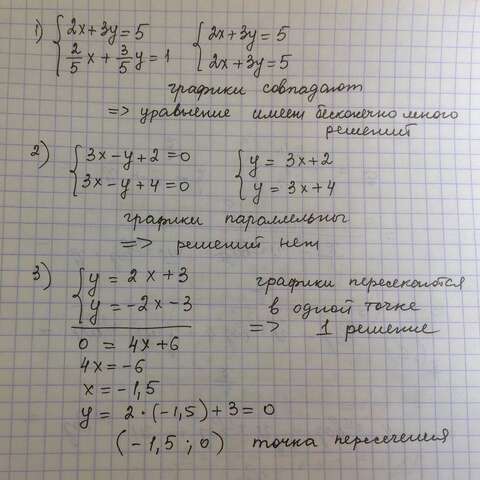 1) { 2x+3y=5 { 2x+3y=5
2/5 x + 3/5 y = 1 2x+3y=5
графики совпадают
=> уравнение имеет бесконечно много
решений
2) { 3x-y+2=0 { y = 3x+2
3x-y+4=0 y = 3x+4
графики параллельны
=> решений нет
3) { y = 2x+3 графики пересекаются
y = -2x-3 в одной точке
=> 1 решение
0 = 4x+6
4x=-6
x = -1,5
y = 2·(-1,5)+3=0
(-1,5 ; 0) точка пересечения